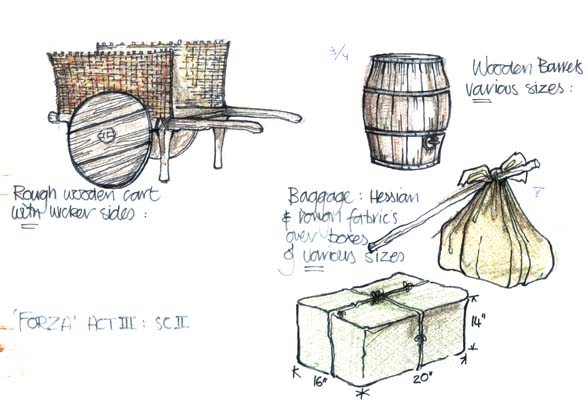 3/4
Wooden Barrels
various sizes :
Rough wooden cart
with wicker sides :
Baggage : Hessian
& fabrics
over boxes
of various sizes
8
'FORZA' ACT III : SC II
14"
16"
20"